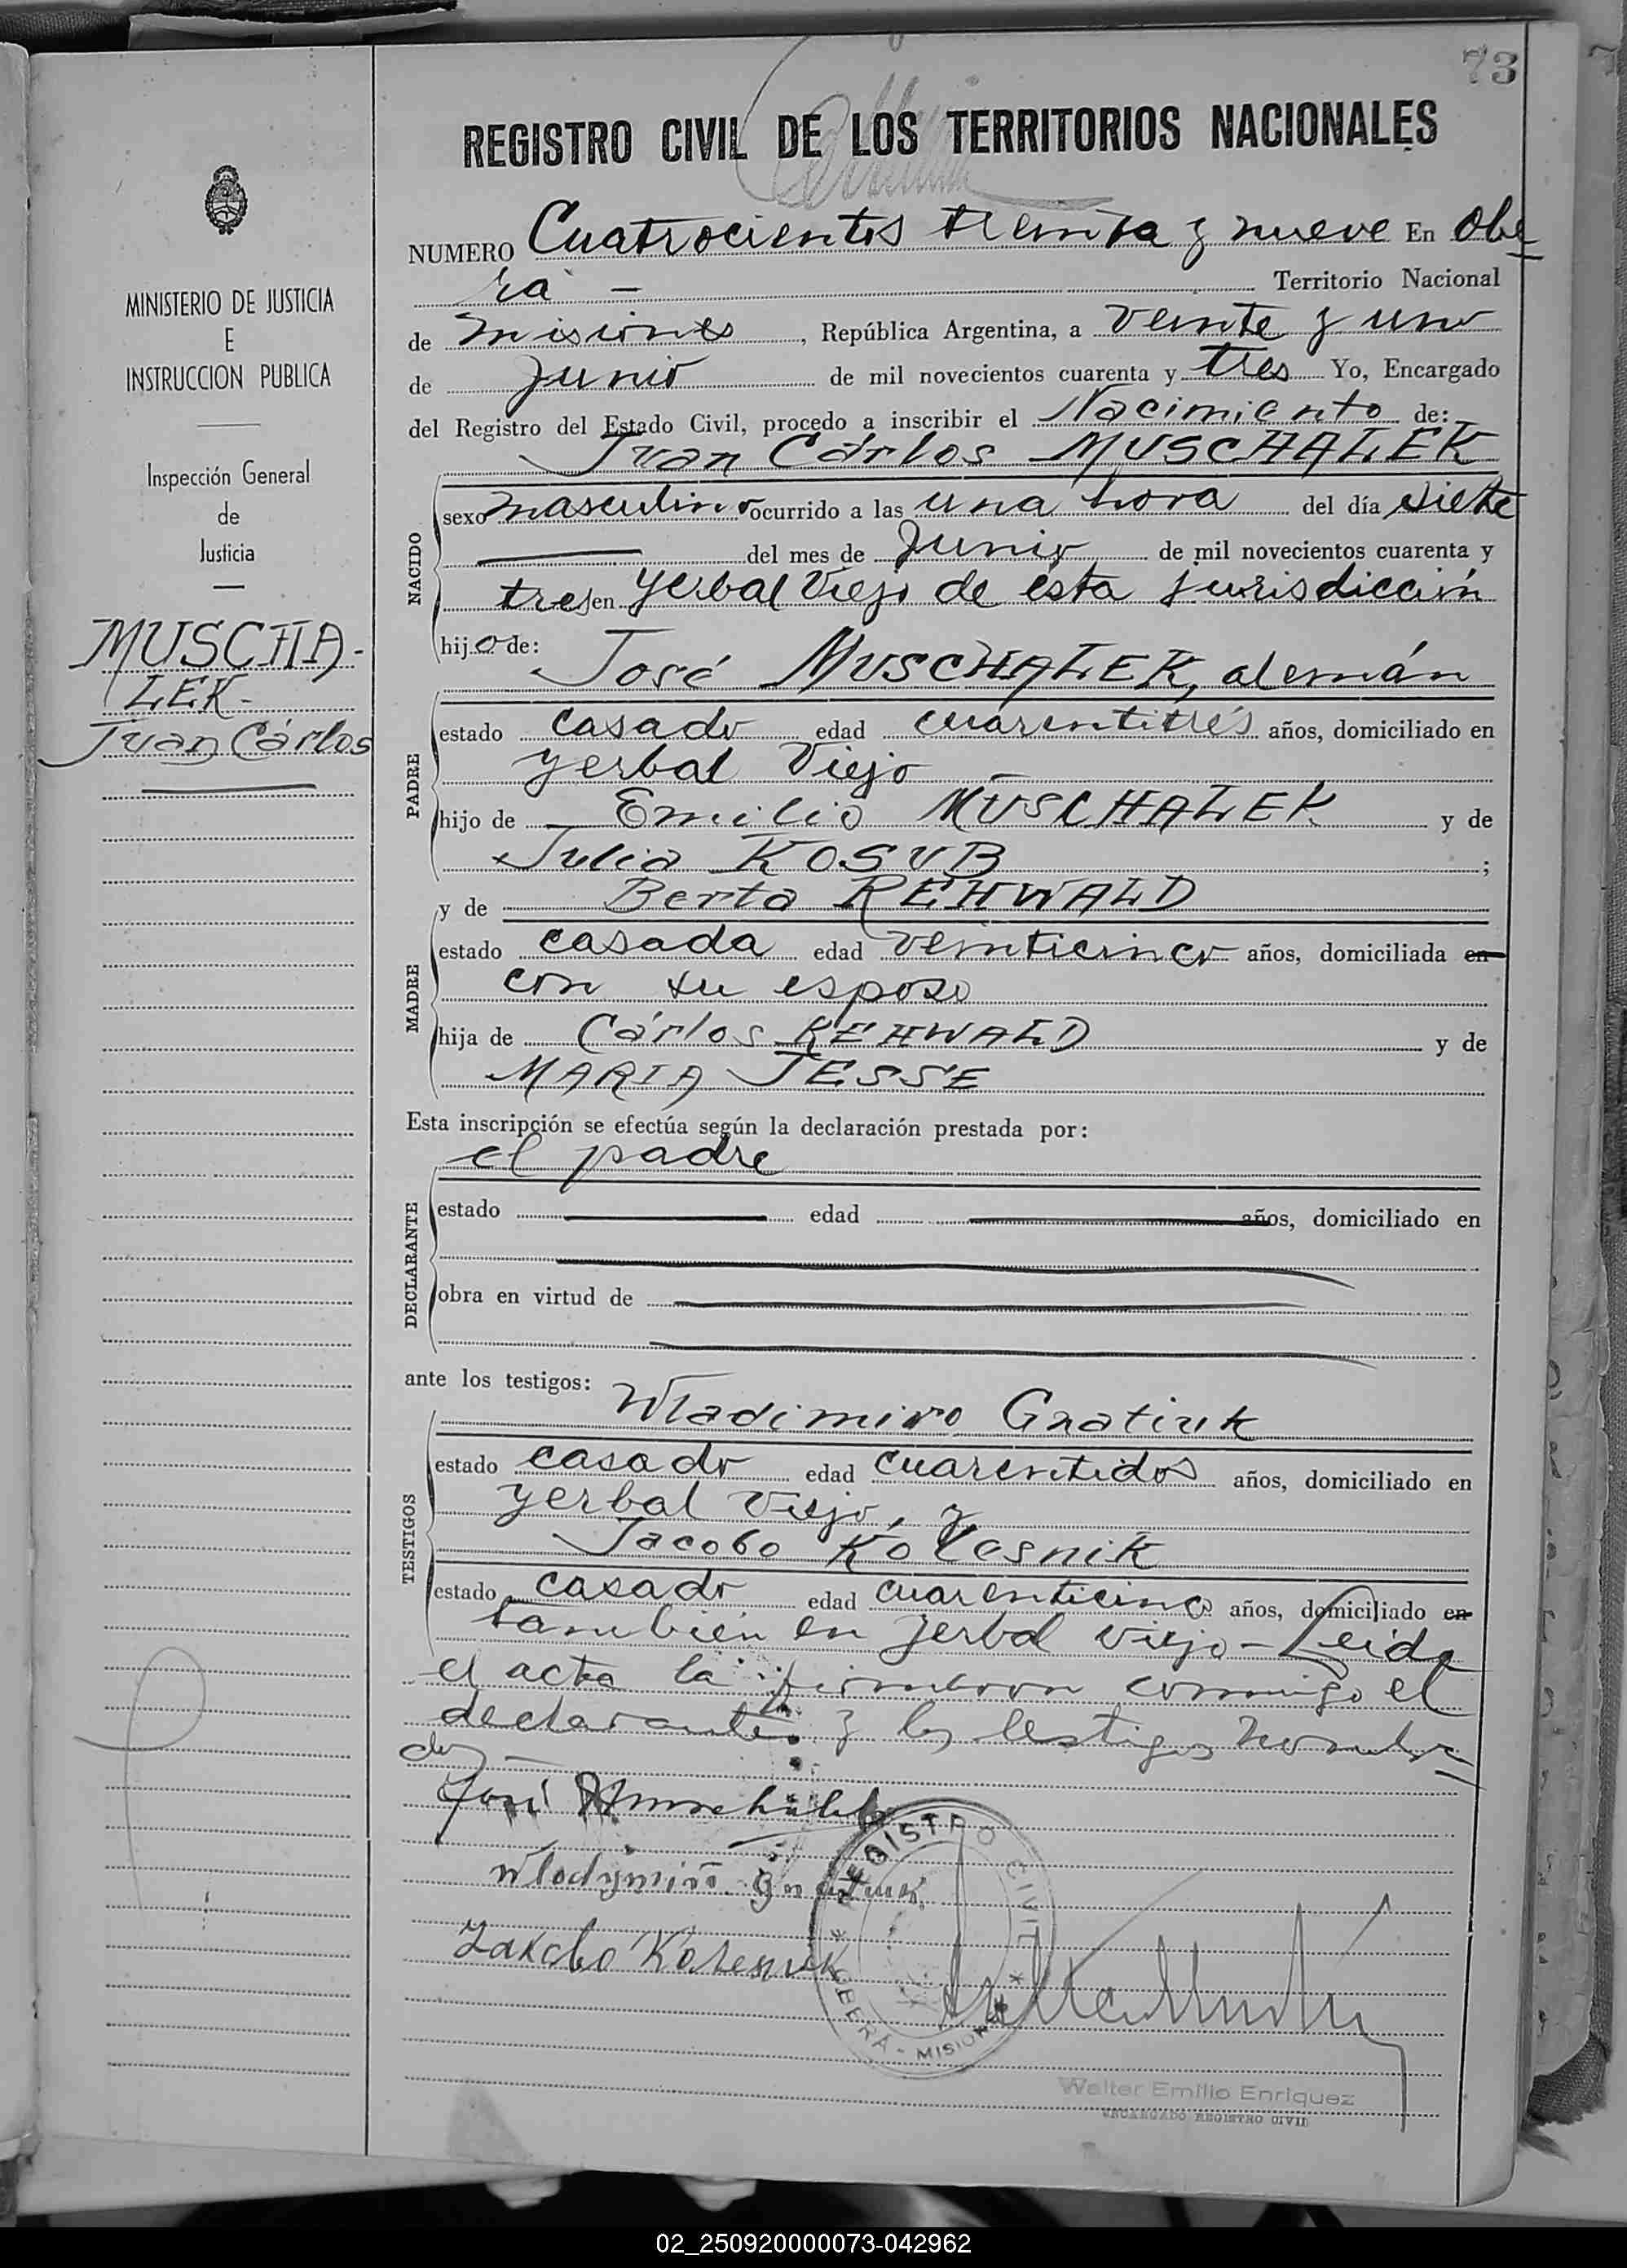 73
REGISTRO CIVIL DE LOS TERRITORIOS NACIONALES
NUMERO Cuatrocientos treinta y nueve En Obe
rá - Territorio Nacional
de Misiones, República Argentina, a veinte y uno
de Junio de mil novecientos cuarenta y tres Yo, Encargado
del Registro del Estado Civil, procedo a inscribir el Nacimiento de:
Juan Cárlos MUSCHALEK
NACIDO
sexo masculino ocurrido a las una hora del día siete
del mes de Junio de mil novecientos cuarenta y
tres en Yerbal Viejo de ésta jurisdicción
hijo de:
José MUSCHALEK, alemán
PADRE
estado casado edad cuarentitrés años, domiciliado en
Yerbal Viejo -
hijo de Emilio MUSCHALEK y de
Julia KOSUB ;
y de Berta REHWALD
MADRE
estado casada edad veinticinco años, domiciliada en
con su esposo
hija de Cárlos REHWALD y de
MARIA JESSE
Esta inscripción se efectúa según la declaración prestada por:
el padre
DECLARANTE
estado edad años, domiciliado en
obra en virtud de
ante los testigos:
Wladimiro Gnatiuk
TESTIGOS
estado casado edad cuarentidos años, domiciliado en
Yerbal Viejo, y
Jacobo Kolesnik
estado casado edad cuarenticinco años, domiciliado en
también en Yerbal Viejo - Leida
el acta la firmaron conmigo el
declarante y los testigos nombra
dos -
José Muschalek
Wlodymiro Gnatiuk
Kolesnik
REGISTRO CIVIL
OBERÁ - MISIONES
Walter Emilio Enriquez
ENCARGADO REGISTRO CIVIL
MINISTERIO DE JUSTICIA
E
INSTRUCCION PUBLICA
Inspección General
de
Justicia
MUSCHA-
LEK-
Juan Cárlos
02_250920000073-042962